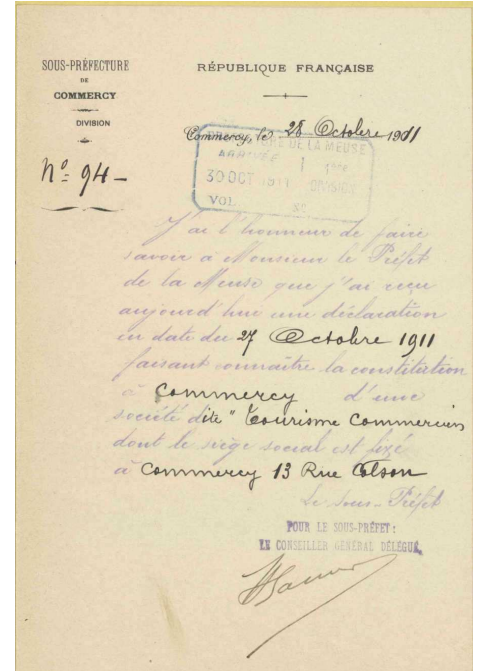 SOUS-PRÉFECTURE
DE
COMMERCY
DIVISION
N° 94 -
RÉPUBLIQUE FRANÇAISE
Commercy, le 28 Octobre 1911
DE LA MEUSE
ARRIVÉE 1ère
30 OCT 1911 DIVISION
VOL. No
J'ai l'honneur de faire
savoir à Monsieur le Préfet
de la Meuse que j'ai reçu
aujourd'hui une déclaration
en date du 27 Octobre 1911
faisant connaître la constitution
à Commercy d'une
société dite "Tourisme Commercien
dont le siège social est fixé
à Commercy 13 Rue Colson
Le Sous-Préfet
POUR LE SOUS-PRÉFET:
LE CONSEILLER GÉNÉRAL DÉLÉGUÉ,